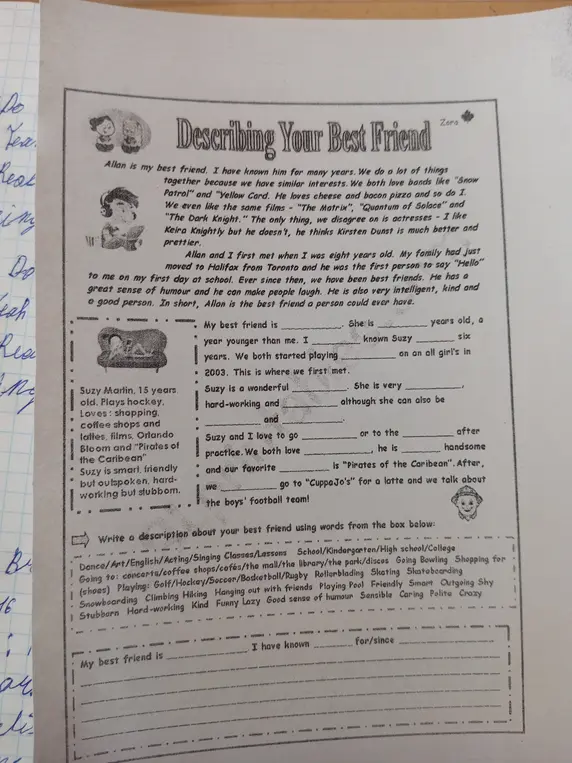 Describing Your Best Friend
Zora
Allan is my best friend. I have known him for many years. We do a lot of things
together because we have similar interests. We both love bands like "Snow
Patrol" and "Yellow Card. He loves cheese and bacon pizza and so do I.
We even like the same films - "The Matrix", "Quantum of Solace" and
"The Dark Knight." The only thing, we disagree on is actresses - I like
Keira Knightly but he doesn't, he thinks Kirsten Dunst is much better and
prettier.
Allan and I first met when I was eight years old. My family had just
moved to Halifax from Toronto and he was the first person to say "Hello"
to me on my first day at school. Ever since then, we have been best friends. He has a
great sense of humour and he can make people laugh. He is also very intelligent, kind and
a good person. In short, Allan is the best friend a person could ever have.
Suzy Martin, 15 years
old. Plays hockey.
Loves: shopping,
coffee shops and
lattes, films, Orlando
Bloom and "Pirates of
the Caribean"
Suzy is smart, friendly
but outspoken, hard-
working but stubborn.
My best friend is ____________. She is __________ years old, a
year younger than me. I __________ known Suzy ________ six
years. We both started playing ___________ on an all girl's in
2003. This is where we first met.
Suzy is a wonderful ___________. She is very ___________,
hard-working and ___________ although she can also be
___________ and __________.
Suzy and I love to go ___________ or to the _________ after
practice. We both love _____________, he is ________ handsome
and our favorite __________ is "Pirates of the Caribean". After,
we __________ go to "CuppaJo's" for a latte and we talk about
the boys' football team!
Write a description about your best friend using words from the box below:
Dance/Art/English/Acting/Singing Classes/Lessons School/Kindergarten/High school/College
Going to: concerts/coffee shops/cafés/the mall/the library/the park/discos Going Bowling Shopping for
(shoes) Playing: Golf/Hockey/Soccer/Basketball/Rugby Rollerblading Skating Skateboarding
Snowboarding Climbing Hiking Hanging out with friends Playing Pool Friendly Smart Outgoing Shy
Stubborn Hard-working Kind Funny Lazy Good sense of humour Sensible Caring Polite Crazy
My best friend is ________________ I have known ________ for/since ____________